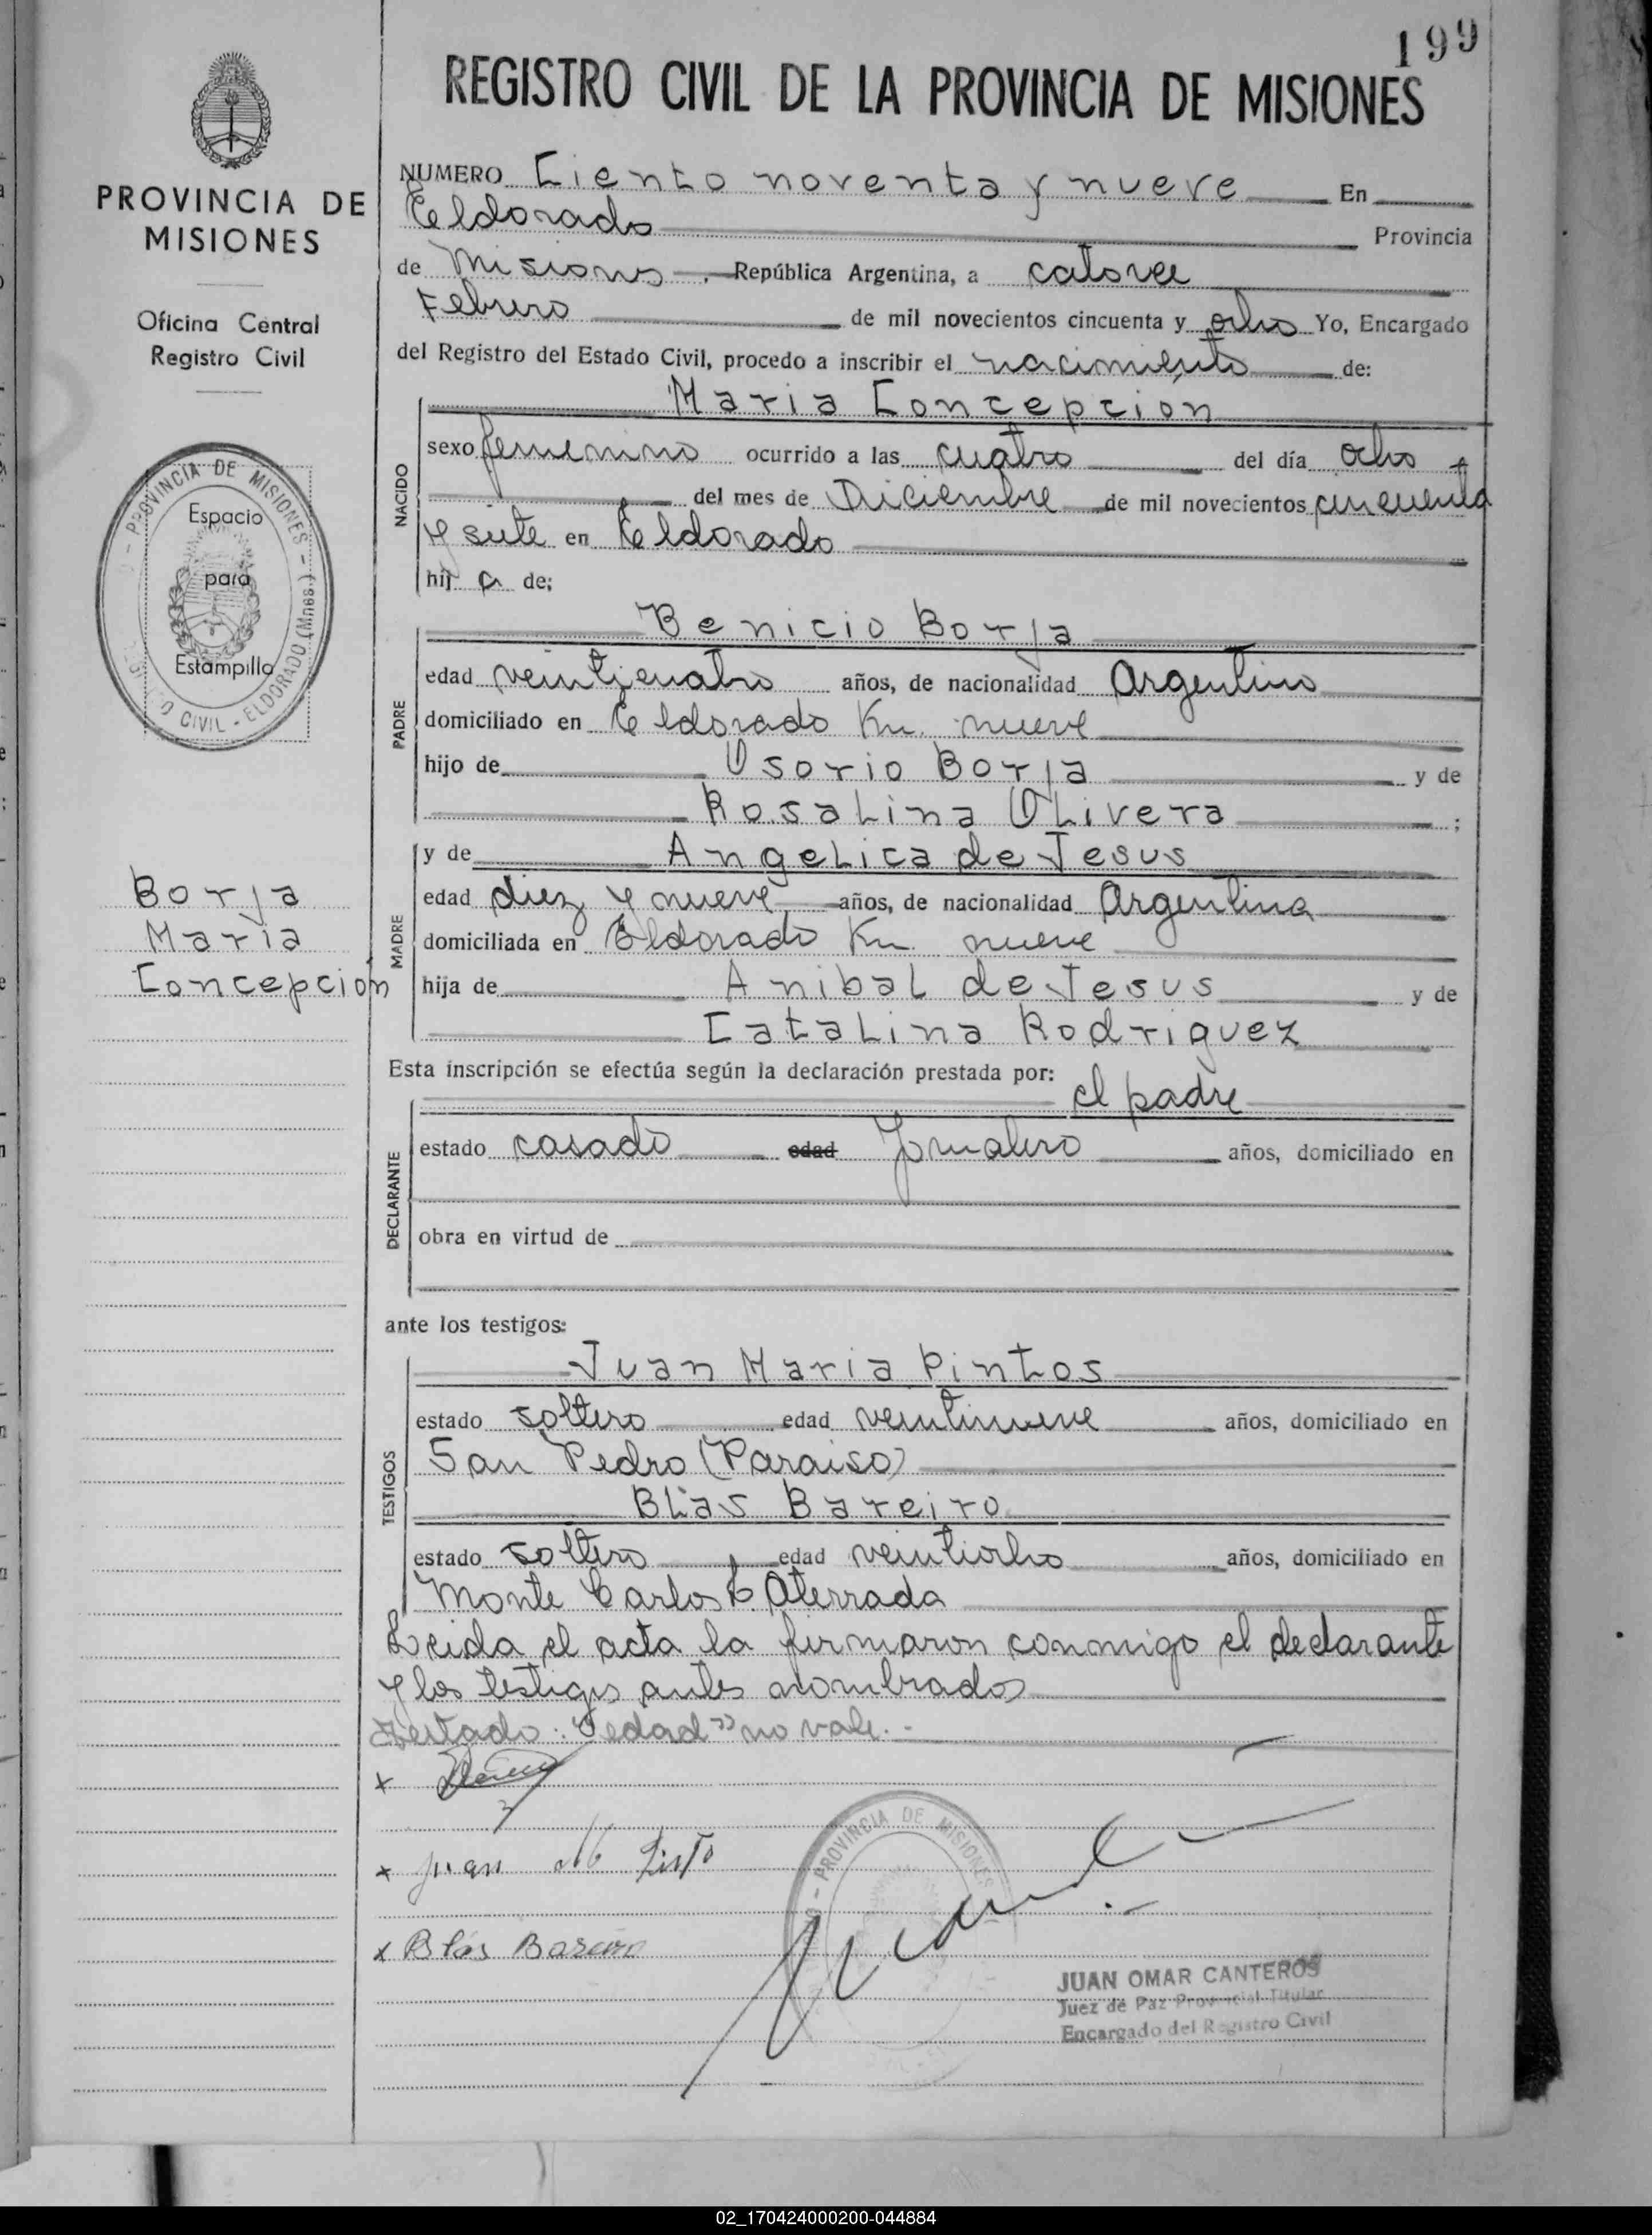 199
REGISTRO CIVIL DE LA PROVINCIA DE MISIONES
PROVINCIA DE
MISIONES
Oficina Central
Registro Civil
PROVINCIA DE MISIONES - (Mnes) ELDORADO - CIVIL
Espacio
para
Estampilla
Borja
Maria
Concepción
NUMERO Ciento noventa y nueve En
Eldorado Provincia
de Misiones República Argentina, a catorce
Febrero de mil novecientos cincuenta y ocho Yo, Encargado
del Registro del Estado Civil, procedo a inscribir el nacimiento de:
Maria Concepcion
NACIDO
sexo femenino ocurrido a las cuatro del día ocho
del mes de Diciembre de mil novecientos cincuenta
y siete en Eldorado
hij a de;
PADRE
Benicio Borja
edad veinticuatro años, de nacionalidad Argentino
domiciliado en Eldorado Km. nueve
hijo de Osorio Borja y de
Rosalina Olivera ;
MADRE
y de Angelica de Jesus
edad diez y nueve años, de nacionalidad Argentina
domiciliada en Eldorado Km nueve
hija de Anibal de Jesus y de
Catalina Rodriguez
Esta inscripción se efectúa según la declaración prestada por:
el padre
DECLARANTE
estado casado edad Jornalero años, domiciliado en
obra en virtud de
ante los testigos:
TESTIGOS
Juan Maria Pintos
estado soltero edad veintinueve años, domiciliado en
San Pedro (Paraiso)
Blas Bareiro
estado soltero edad veintiocho años, domiciliado en
Monte Carlos Aterrada
Leida el acta la firmaron conmigo el declarante
y los testigos antes nombrados
Testado: "edad" no vale.-
x
x Juan M Pinto
x Blas Bareiro
PROVINCIA DE MISIONES
JUAN OMAR CANTEROS
Juez de Paz Provincial Titular
Encargado del Registro Civil
02_170424000200-044884